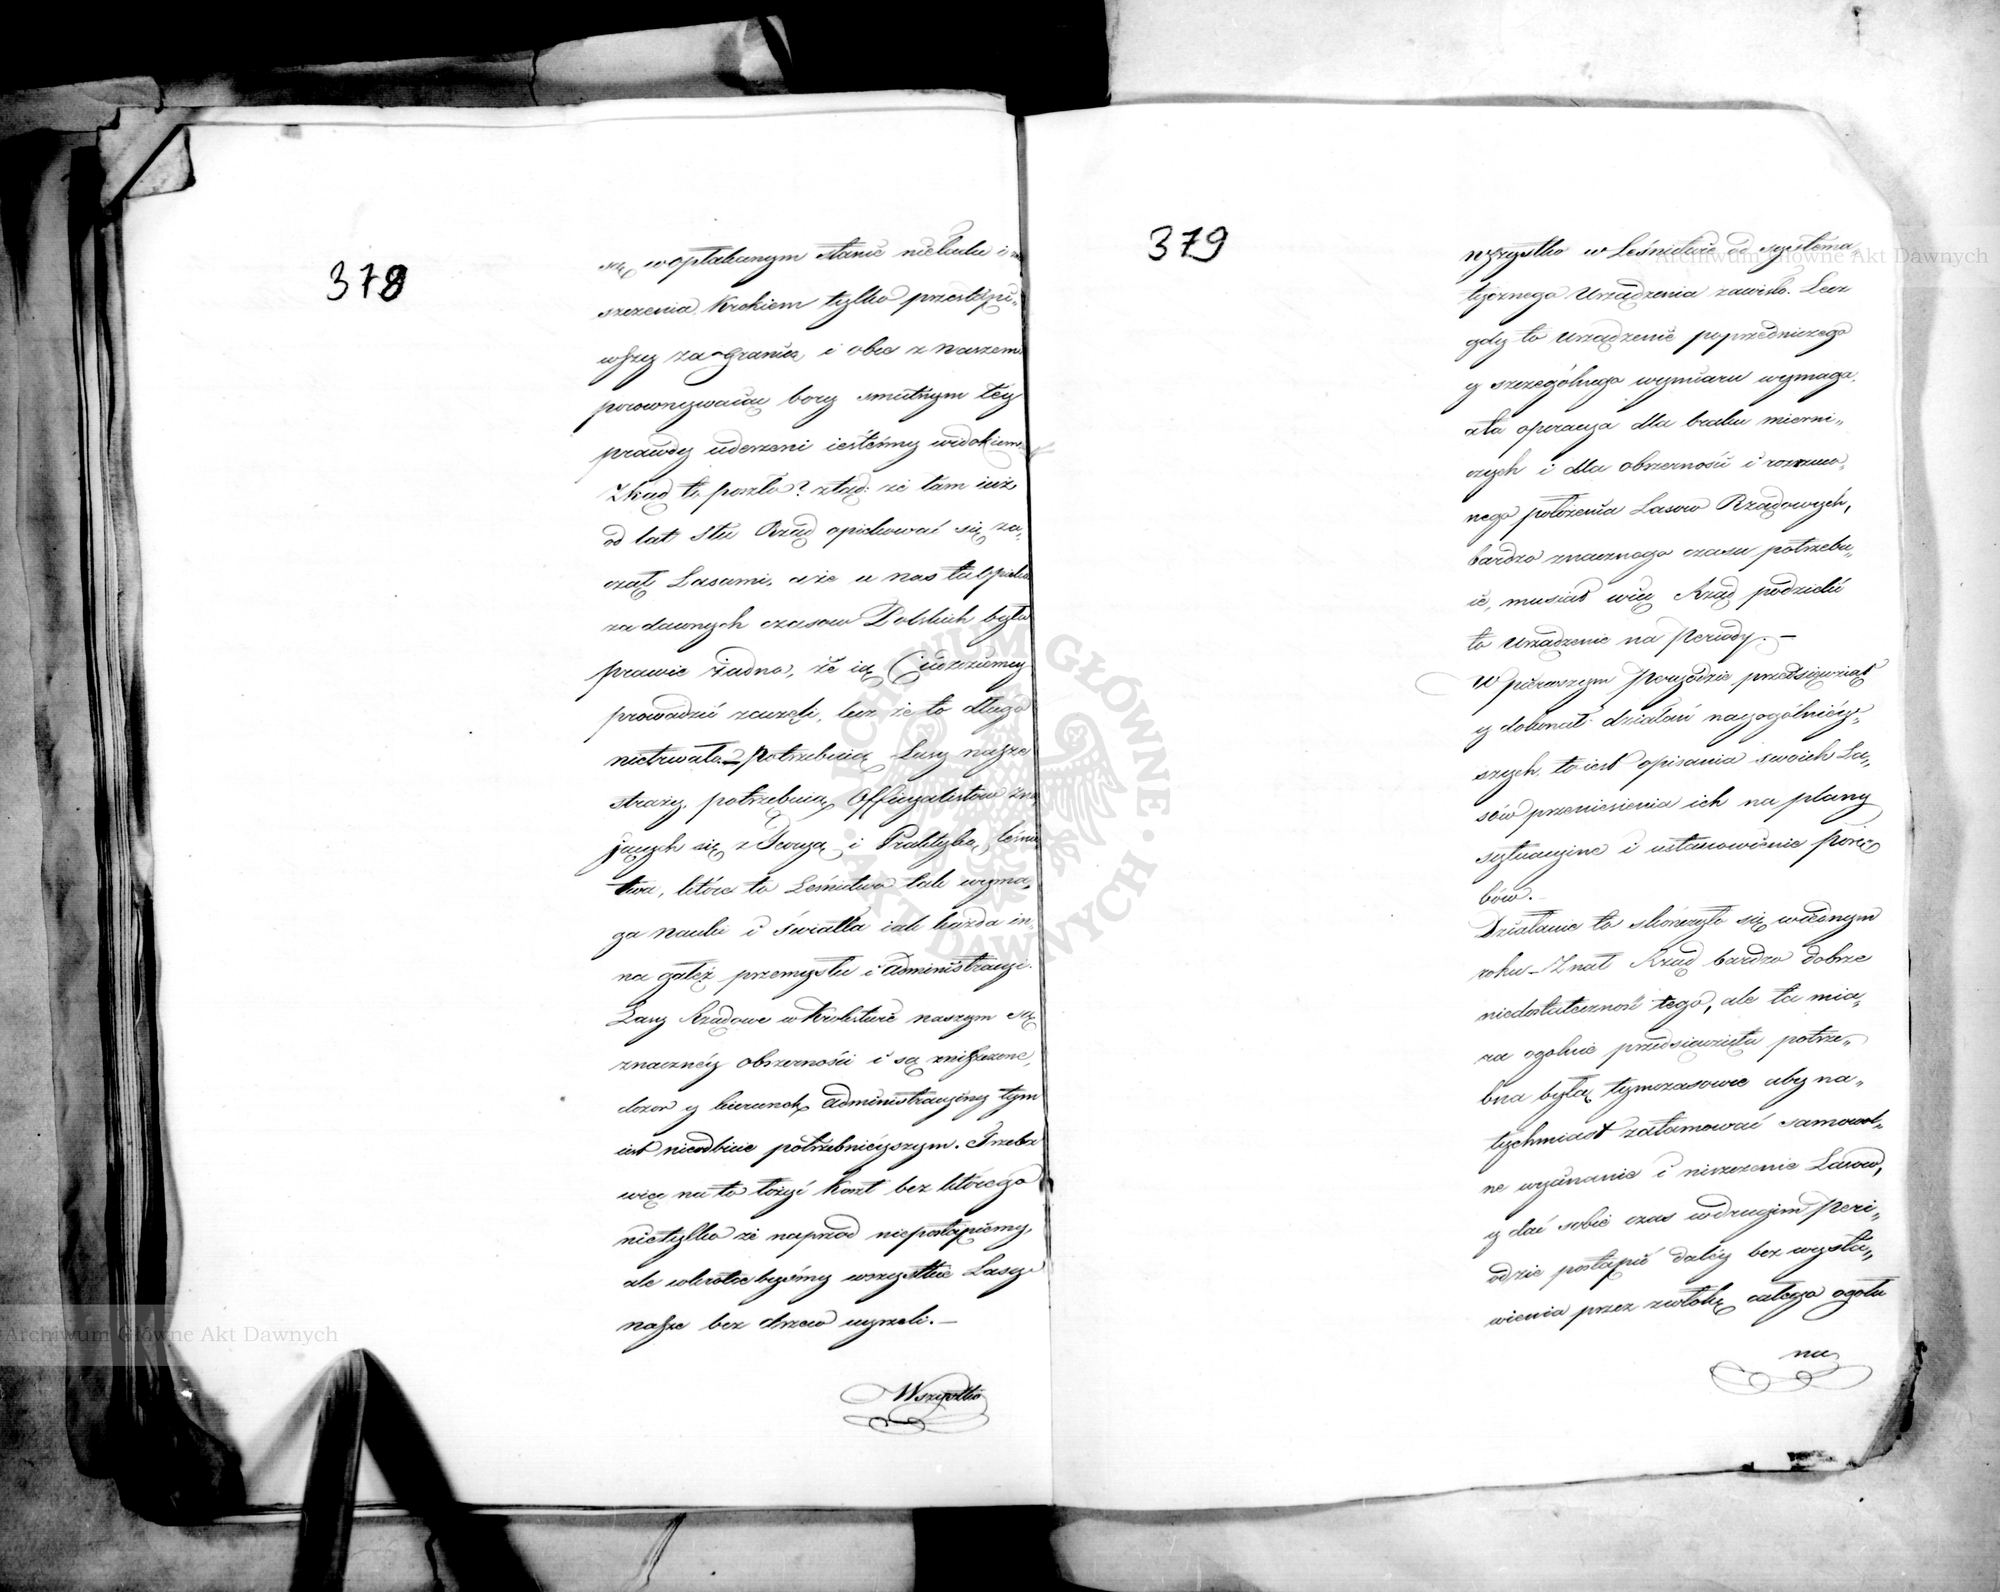 378
są w opłakanym stanie nieładu i zni
szczenia. Krokiem tylko przestąpi„
wszy za granicę i obce z naszemi
porownywaiąc bory smutnym tey
prawdy uderzeni iesteśmy widokiem.
Zkąd to poszło? ztąd: że tam iuż
od lat Stu Rząd opiekować się za„
czął Lasami, a że u nas ta opieka
za dawnych czasow Polskich była
prawie żadna, że ią Cudzoziemcy
prowadzić zaczęli, lecz że to długo
nietrwało. – Potrzebuią Lasy nasze
straży, potrzebuią Officyalistow zna
jących się z Teoryą i Praktyką leśnic
twa, które to Leśnictwo tak wyma„
ga nauki i światła iak każda in„
na gałęź przemysłu i administracyi.
Lasy Rządowe w Krolestwie naszym są
znacznéy obszerności i są zniszczone,
dozor y kierunek administracyiny tym
iest nieodbicie potrzebnieyszym. Trzeba
więc na to łożyć koszt bez którego
nietylko że naprzod niepostąpiemy,
ale wkrotce byśmy wszystkie Lasy
nasze bez drzew uyrzeli. –
Wszystko
379
Wszystko w Leśnictwie od systema„
tycznego Urządzenia zawisło. Lecz
gdy to urządzenie poprzedniczego
y szczegółnego wymiaru wymaga,
a ta operacya dla braku mierni„
czych i dla obszerności i rozrzuco„
nego położenia Lasow Rządowych,
bardzo znacznego czasu potrzebu„
ie, musiał więc Rząd podzielić
to urządzenie na Periody. –
W pierwszym Peryodzie przedsięwziął
y dokonał działań nayogólniéy„
szych, to iest opisania swoich La„
sów przeniesienia ich na plany
sytuacyine i ustanowienie porę
bów. –
Działanie to skończyło się w iednym
roku – Znał Rząd bardzo dobrze
niedostateczność tego, ale ta mia„
ra ogolnie przedsięwzięta potrze„
bna była tymczasowie aby na„
tychmiast zatamować samowol„
ne wycinanie i niszczenie Lasow,
y dać sobie czas w drugim Peri„
odzie postąpić daléy bez wysta„
wienia przez zwłokę całego ogołu
na
Archiwum Główne Akt Dawnych
Archiwum Główne Akt Dawnych
ARCHIWUM GŁÓWNE AKT DAWNYCH